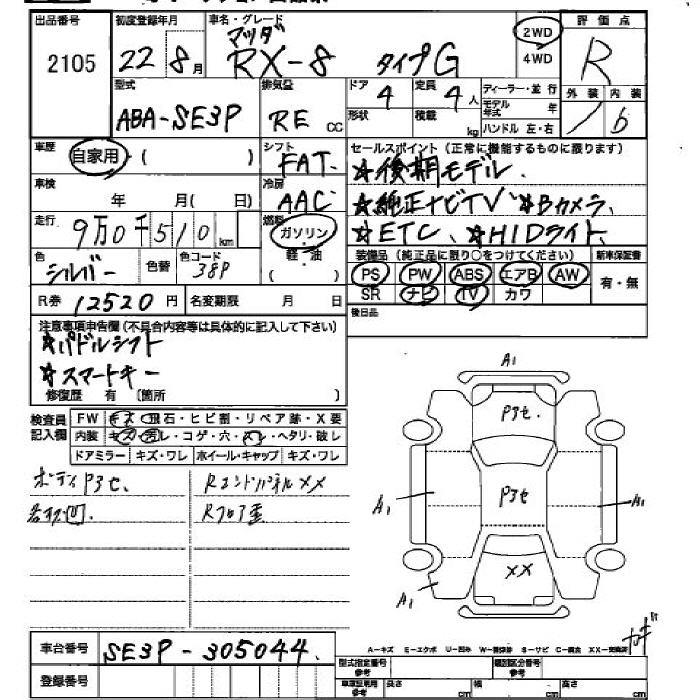 出品番号
2105
初度登録年月
22 8月
車名・グレード
マツダ
RX-8 タイプG
2WD
4WD
評価点
R
外装 内装
b
型式
ABA-SE3P
排気量
RE cc
ドア
4
定員
4人
形状
積載
kg
ディーラー・並行
モデル年式 年
ハンドル 左・右
車歴
自家用・( )
シフト
FAT
車検
年 月( 日)
冷房
AAC
走行
9万0千510km
燃料
ガソリン
軽・油
色
シルバー
色替
色コード
38P
R券 12520円
名変期限 月 日
セールスポイント(正常に機能するものに限ります)
☆後期モデル
☆純正ナビTV ☆Bカメラ
☆ETC、☆HIDライト
装備品(純正品に限り○をつけてください)
新車保証書
PS PW ABS エアB AW
有・無
SR ナビ TV カワ
後日品
注意事項申告欄(不具合内容等は具体的に記入して下さい)
☆パドルシフト
☆スマートキー
修復歴 有 〔箇所 〕
検査員
記入欄
FW キズ・飛石・ヒビ割・リペア跡・X要
内装 キズ・汚レ・コゲ・穴・ ・ヘタリ・破レ
ドアミラー キズ・ワレ ホイール・キャップ キズ・ワレ
ボディP3セ、
RエンドパネルXX
Rフロア歪
A1
P3セ.
P3セ
A1
A1
XX
A1
A-キズ E-エクボ U-凹み
車台番号
SE3P-305044
登録番号
型式指定番号
参考
類別区分番号
参考
長さ cm
幅 cm
高さ cm